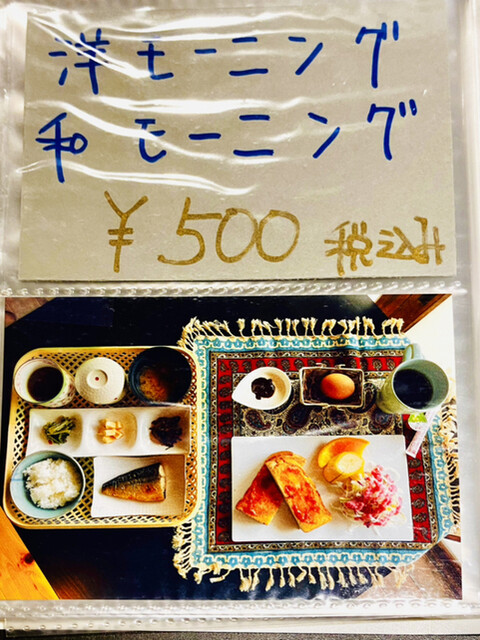 洋モーニング
和モーニング
¥500 税込み